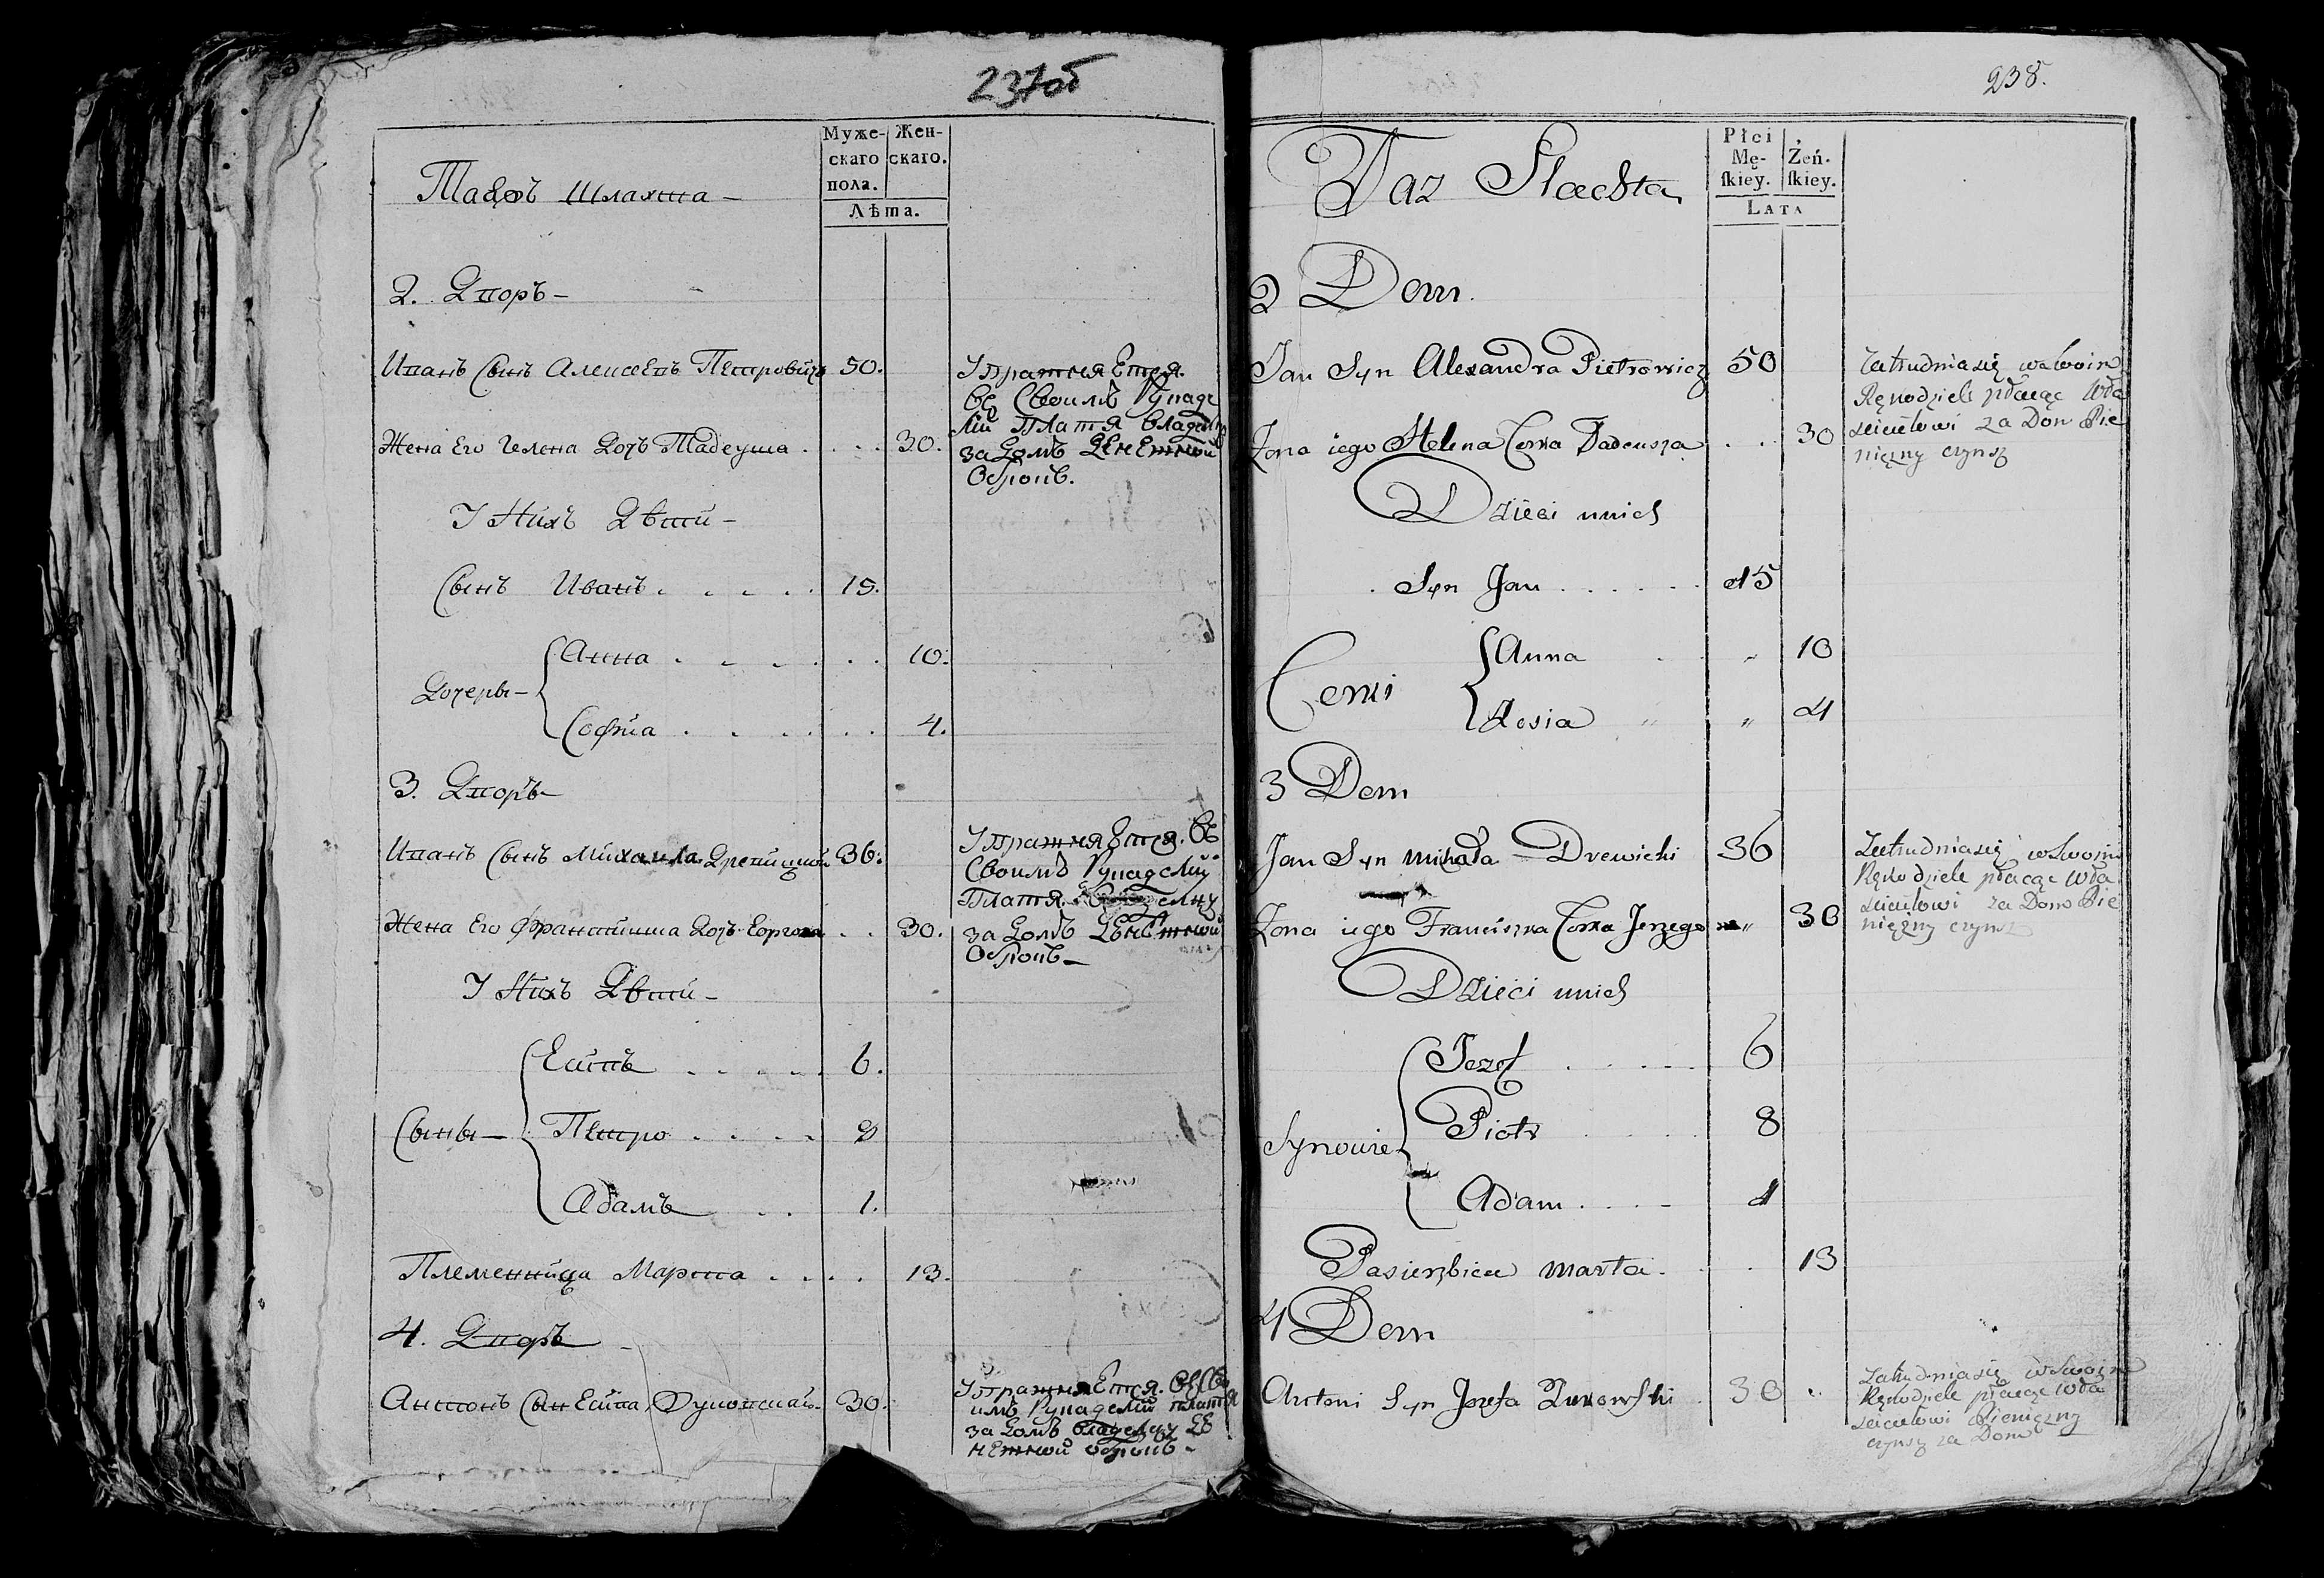 237об
Муже- Жен-
скаго скаго.
пола.
Лѣта.
шляхта
2. Дворъ
Иванъ Сынъ Алексеевъ Петровичъ 50.
Упражняется
въ Своимъ Рукаде
лiи Платя владелцу
за Домъ Денежной
Оброкъ.
Жена Его Гелена Дочь Тадеуша 30.
У Нихъ Дѣти
Сынъ Иванъ 15.
Дочеры
Анна 10.
София 4.
3. Дворъ
Иванъ Сынъ Михаила Древицкий 36.
Упражняется въ
Своимъ Рукаделiй
Платя
за Домъ Денежной
Оброкъ
Жена Его Францишка Дочь 30.
У Нихъ Дѣти
Сыны
Есипъ 6.
Петро 8
Адамъ 1.
Племенница Марта 13.
4. Дворъ
Антонъ Сын Есипа 30.
Упражняется въ Сво
имъ Рукаделiй платя
за Домъ владелцу Де
нежной оброкъ
238.
Płci
Mę- Żeń.
ſkiey. ſkiey.
LATA
Taz Slachta
2 Dom.
Jan Syn Alexandra Pietrowicz 50
Zatrudnia się w swoim
Rękodziele płacąc Wła
scicielowi za Dom Pie
nięzny czynsz
Zona iego Helena Corka Tadeusza 30
Dzieci unich
Syn Jan 15
Corki
Anna 10
Zosia 4
3 Dom
Jan Syn Michała Drewicki 36
Zatrudnia się w Swoim
Rękodziele płacąc Wła
scicielowi za Dom Pie
nięzny czynsz
Zona iego Franciszka Corka Jerzego 30
Dzieci unich
Synowie
Jozef 6
Piotr 8
Adam 1
Pasierzbica Marta 13
4 Dom
Antoni Syn Jozefa Zukowski 30
Zatrudnia się w Swoim
Rękodziele płacąc Wła
scicielowi Pienięzny
czynsz za Dom